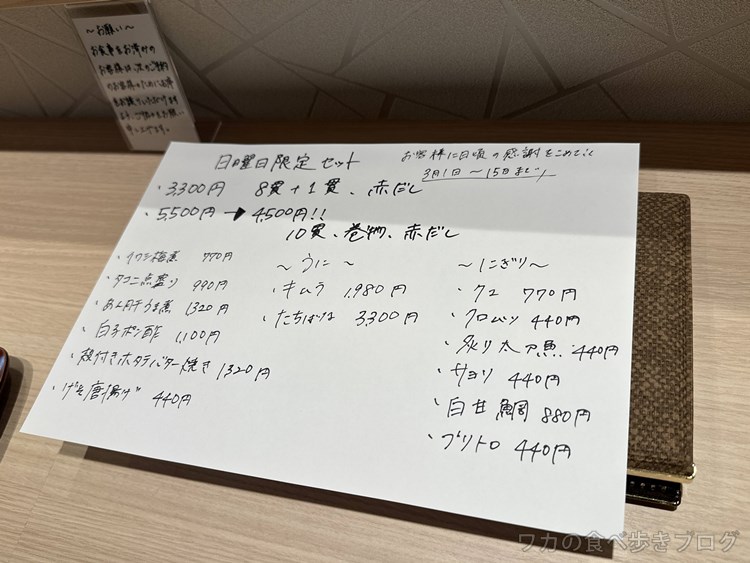 ～お願い～
お食事をお済けの
お客様は、次のご予約
のお客様のためにお席
をお譲りいただけます
よう、ご協力をお願い
申し上げます。
日曜日限定セット
お客様に日頃の感謝をこめて
3月1日～15日まで
・3,300円 8貫+1貫、赤だし
・5,500円→4,500円!!
10貫、巻物、赤だし
・イワシ梅煮 770円
・タコ二点盛り 990円
・あん肝うま煮 1320円
・白子ポン酢 1,100円
・殻付きホタテバター焼き 1320円
・げそ唐揚げ 440円
～うに～
・キムラ 1,980円
・たちばな 3,300円
～にぎり～
・クエ 770円
・クロムツ 440円
・炙り太刀魚 440円
・サヨリ 440円
・白甘鯛 880円
・ブリトロ 440円
ワカの食べ歩きブログ